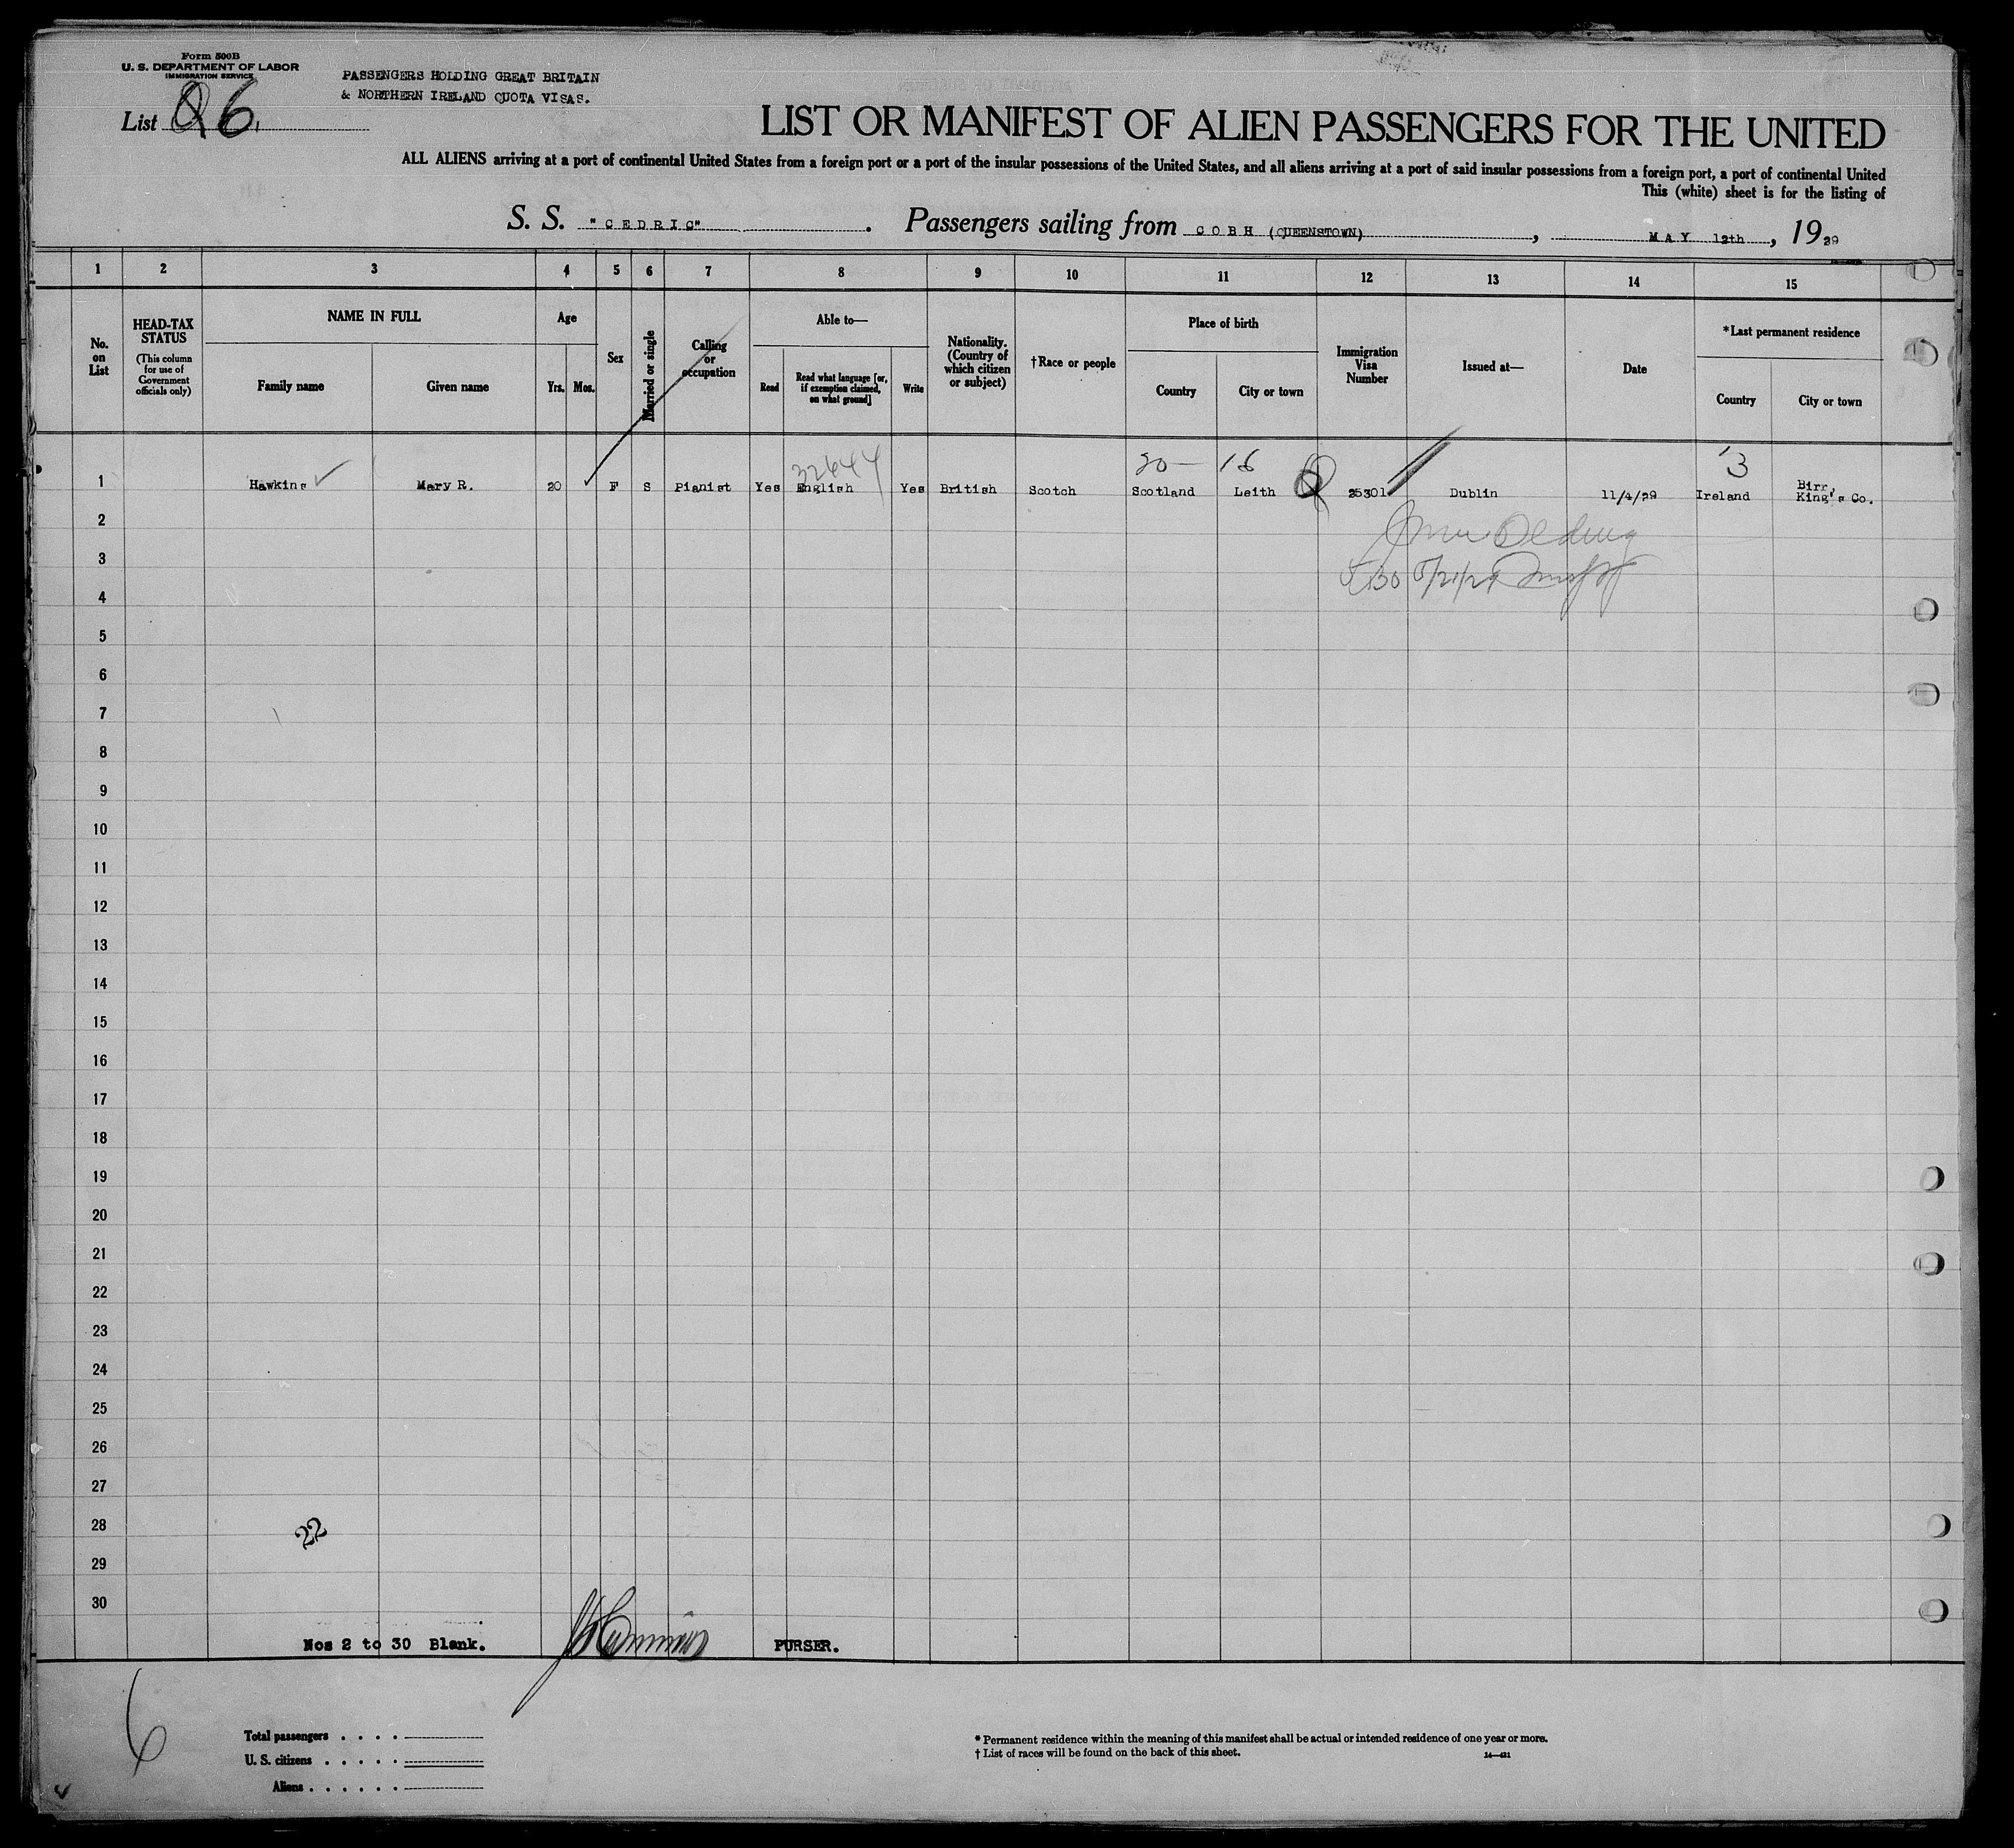 Form 500B
U. S. DEPARTMENT OF LABOR
IMMIGRATION SERVICE
PASSENGERS HOLDING GREAT BRITAIN
& NORTHERN IRELAND QUOTA VISAS.
List 26
LIST OR MANIFEST OF ALIEN PASSENGERS FOR THE UNITED
ALL ALIENS arriving at a port of continental United States from a foreign port or a port of the insular possessions of the United States, and all aliens arriving at a port of said insular possessions from a foreign port, a port of continental United
This (white) sheet is for the listing of
S. S. "CEDRIC". Passengers sailing from COBH (QUEENSTOWN), MAY 12th, 1929
1 2 3 4 5 6 7 8 9 10 11 12 13 14 15
No. on List
HEAD-TAX STATUS
(This column for use of Government officials only)
NAME IN FULL
Family name Given name
Age
Yrs. Mos.
Sex
Married or single
Calling or occupation
Able to—
Read
Read what language [or, if exemption claimed, on what ground]
Write
Nationality. (Country of which citizen or subject)
†Race or people
Place of birth
Country City or town
Immigration Visa Number
Issued at—
Date
*Last permanent residence
Country City or town
32644 20— 16 3
1 Hawkins Mary R. 20 F S Pianist Yes English Yes British Scotch Scotland Leith 25301 Dublin 11/4/29 Ireland Birr, King's Co.
5/21/29
2
3
4
5
6
7
8
9
10
11
12
13
14
15
16
17
18
19
20
21
22
23
24
25
26
27
28
22
29
30
Nos 2 to 30 Blank. PURSER.
6
Total passengers
U. S. citizens
Aliens
* Permanent residence within the meaning of this manifest shall be actual or intended residence of one year or more.
† List of races will be found on the back of this sheet.
14—421